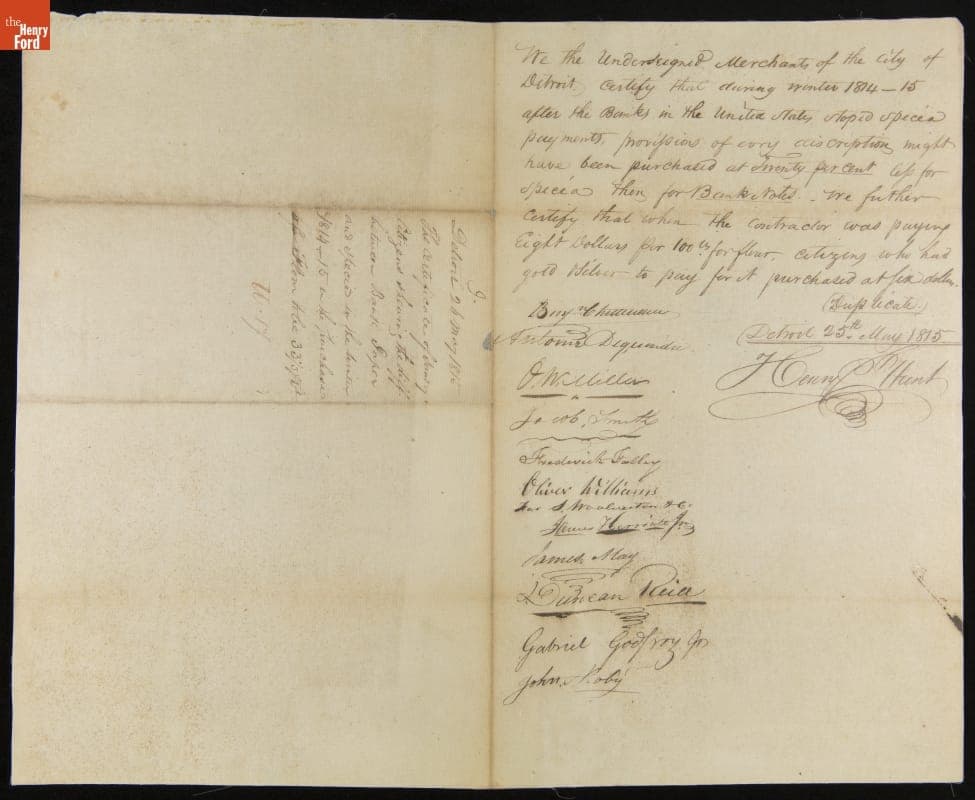 the
Henry
Ford
We the Undersigned Merchants of the City of
Detroit, Certify that during winter 1814–15
after the Banks in the United States stoped specia
payments, provissions of evry discription might
have been purchased at Twenty per cent less for
specia then for Bank Notes. We further
Certify that when the contractor was paying
Eight Dollars per 100 lb for flour, citizens who had
gold & silver to pay for it purchased at six dollars.
(Duplicate)
Detroit 25th May 1815
Henry J. Hunt
Benj. Chittenden
Antoine Dequindre
O. W. Miller
Jacob Smith
Frederick Falley
Oliver Williams
For S. Woolverton & Co.
James Jr.
James May
Duncan Reid
Gabriel Godfroy Jr
John
Detroit 26 May 1815
The Certificate of
Citizens showing the diff.
between Bank Paper
and Specie in the winter
1814–15 in the purchase